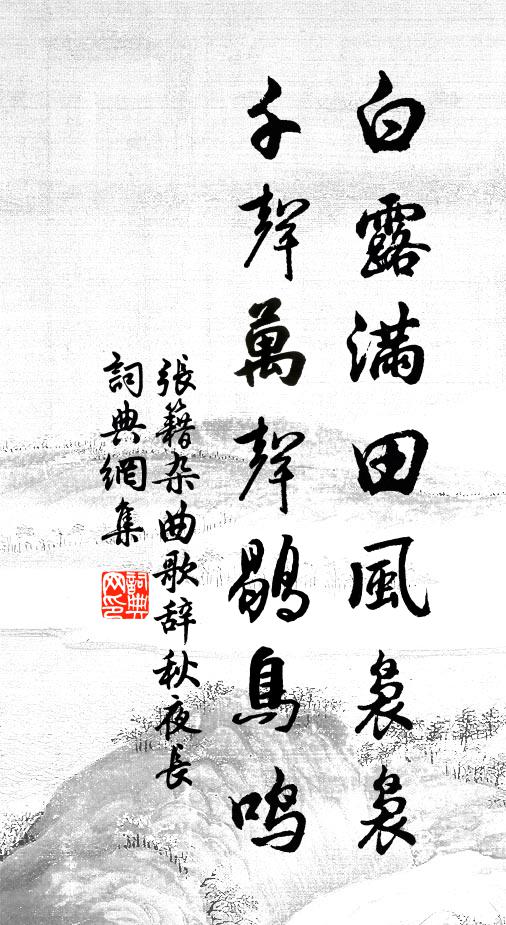 白露滿田風袅袅
千聲萬聲鶡鳥鳴
張籍杂曲歌辞秋夜長
詞典網集
詞典網印